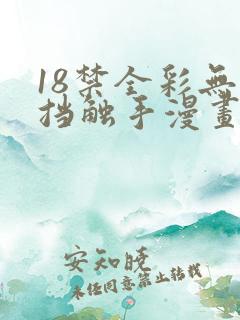 18禁全彩無
挡触手漫畫
安知晓
未经同意禁止转载